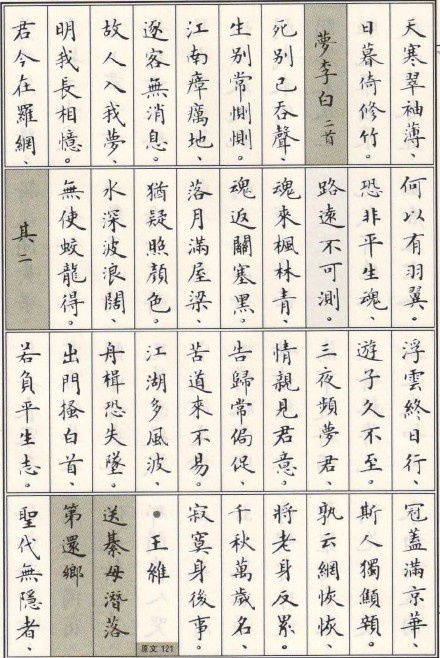 天寒翠袖薄、
日暮倚修竹。
夢李白 二首
死別已吞聲、
生別常惻惻。
江南瘴癘地、
逐客無消息。
故人入我夢、
明我長相憶。
君今在羅網、
何以有羽翼。
恐非平生魂、
路遠不可測。
魂來楓林青、
魂返關塞黑。
落月滿屋梁、
猶疑照顏色。
水深波浪闊、
無使蛟龍得。
其二
浮雲終日行、
遊子久不至。
三夜頻夢君、
情親見君意。
告歸常侷促、
苦道來不易。
江湖多風波、
舟楫恐失墜。
出門搔白首、
若負平生志。
冠蓋滿京華、
斯人獨顦顇。
孰云網恢恢、
將老身反累。
千秋萬歲名、
寂寞身後事。
●王維
原文 121
送綦毋潛落
第還鄉
聖代無隱者、